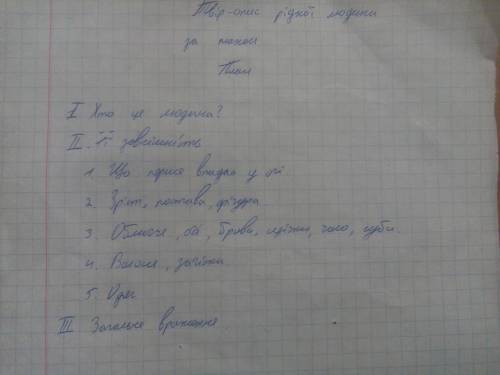 Твір-опис рідної людини
за планом
План
I. Хто ця людина?
II. Її зовнішність
1. Що перше впадає у очі.
2. Зріст, постава, фігура.
3. Обличчя, очі, брови, щічки, чоло, губи.
4. Волосся, зачіска.
5. Одяг.
III. Загальне враження